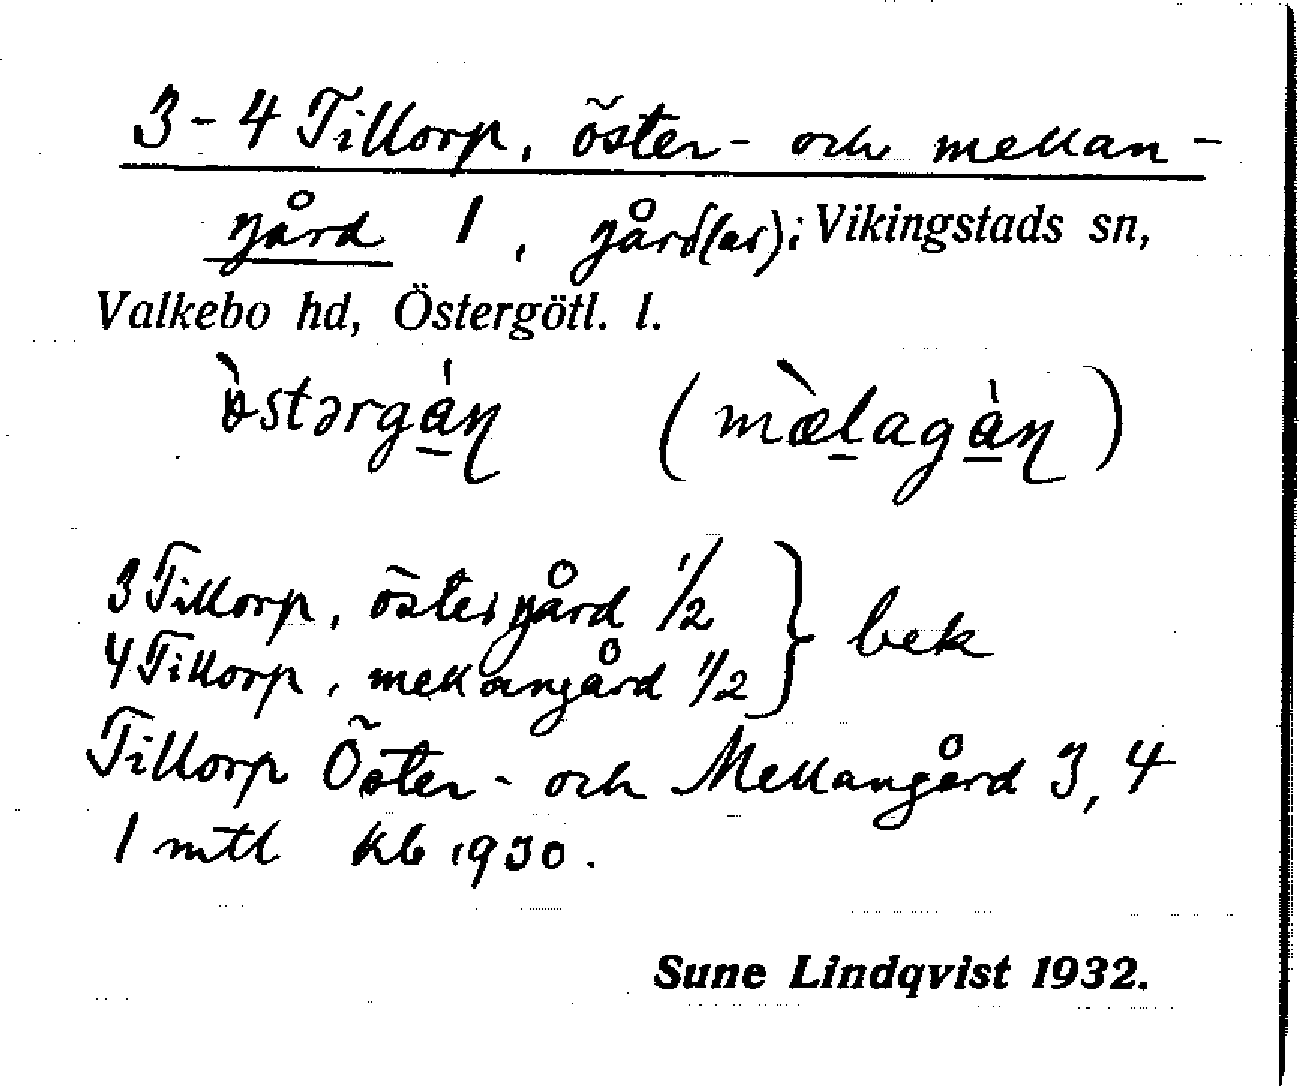 3-4 Tillorp, öster- och mellan-
gård 1, gård(ar); Vikingstads sn,
Valkebo hd, Östergötl. l.
ò̀stərgá̱ɳ (mæ̀ḻagà̱ɳ)
3 Tillorp, östergård 1/2 } bek
4 Tillorp, mellangård 1/2
Tillorp Öster- och Mellangård 3, 4
1 mtl kb 1930.
Sune Lindqvist 1932.